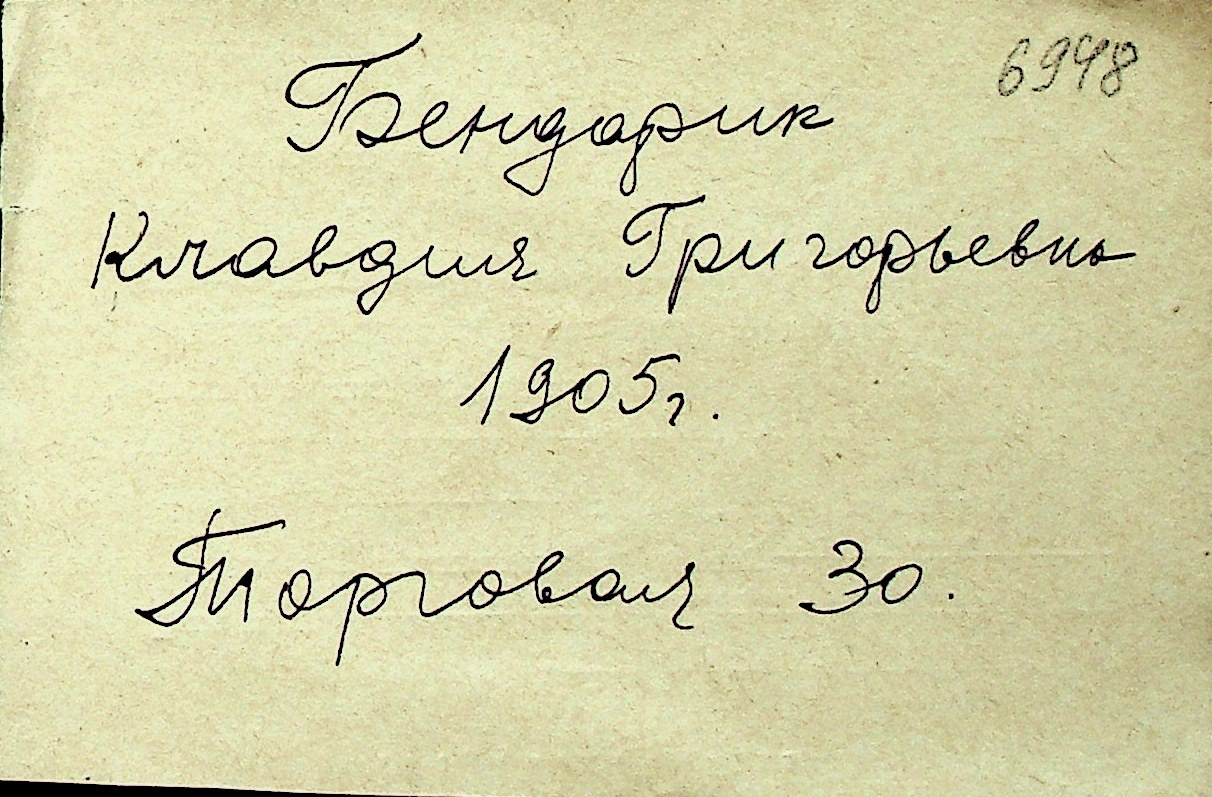 6948
Бендарик
Клавдия Григорьевна
1905г.
Торговая 30.